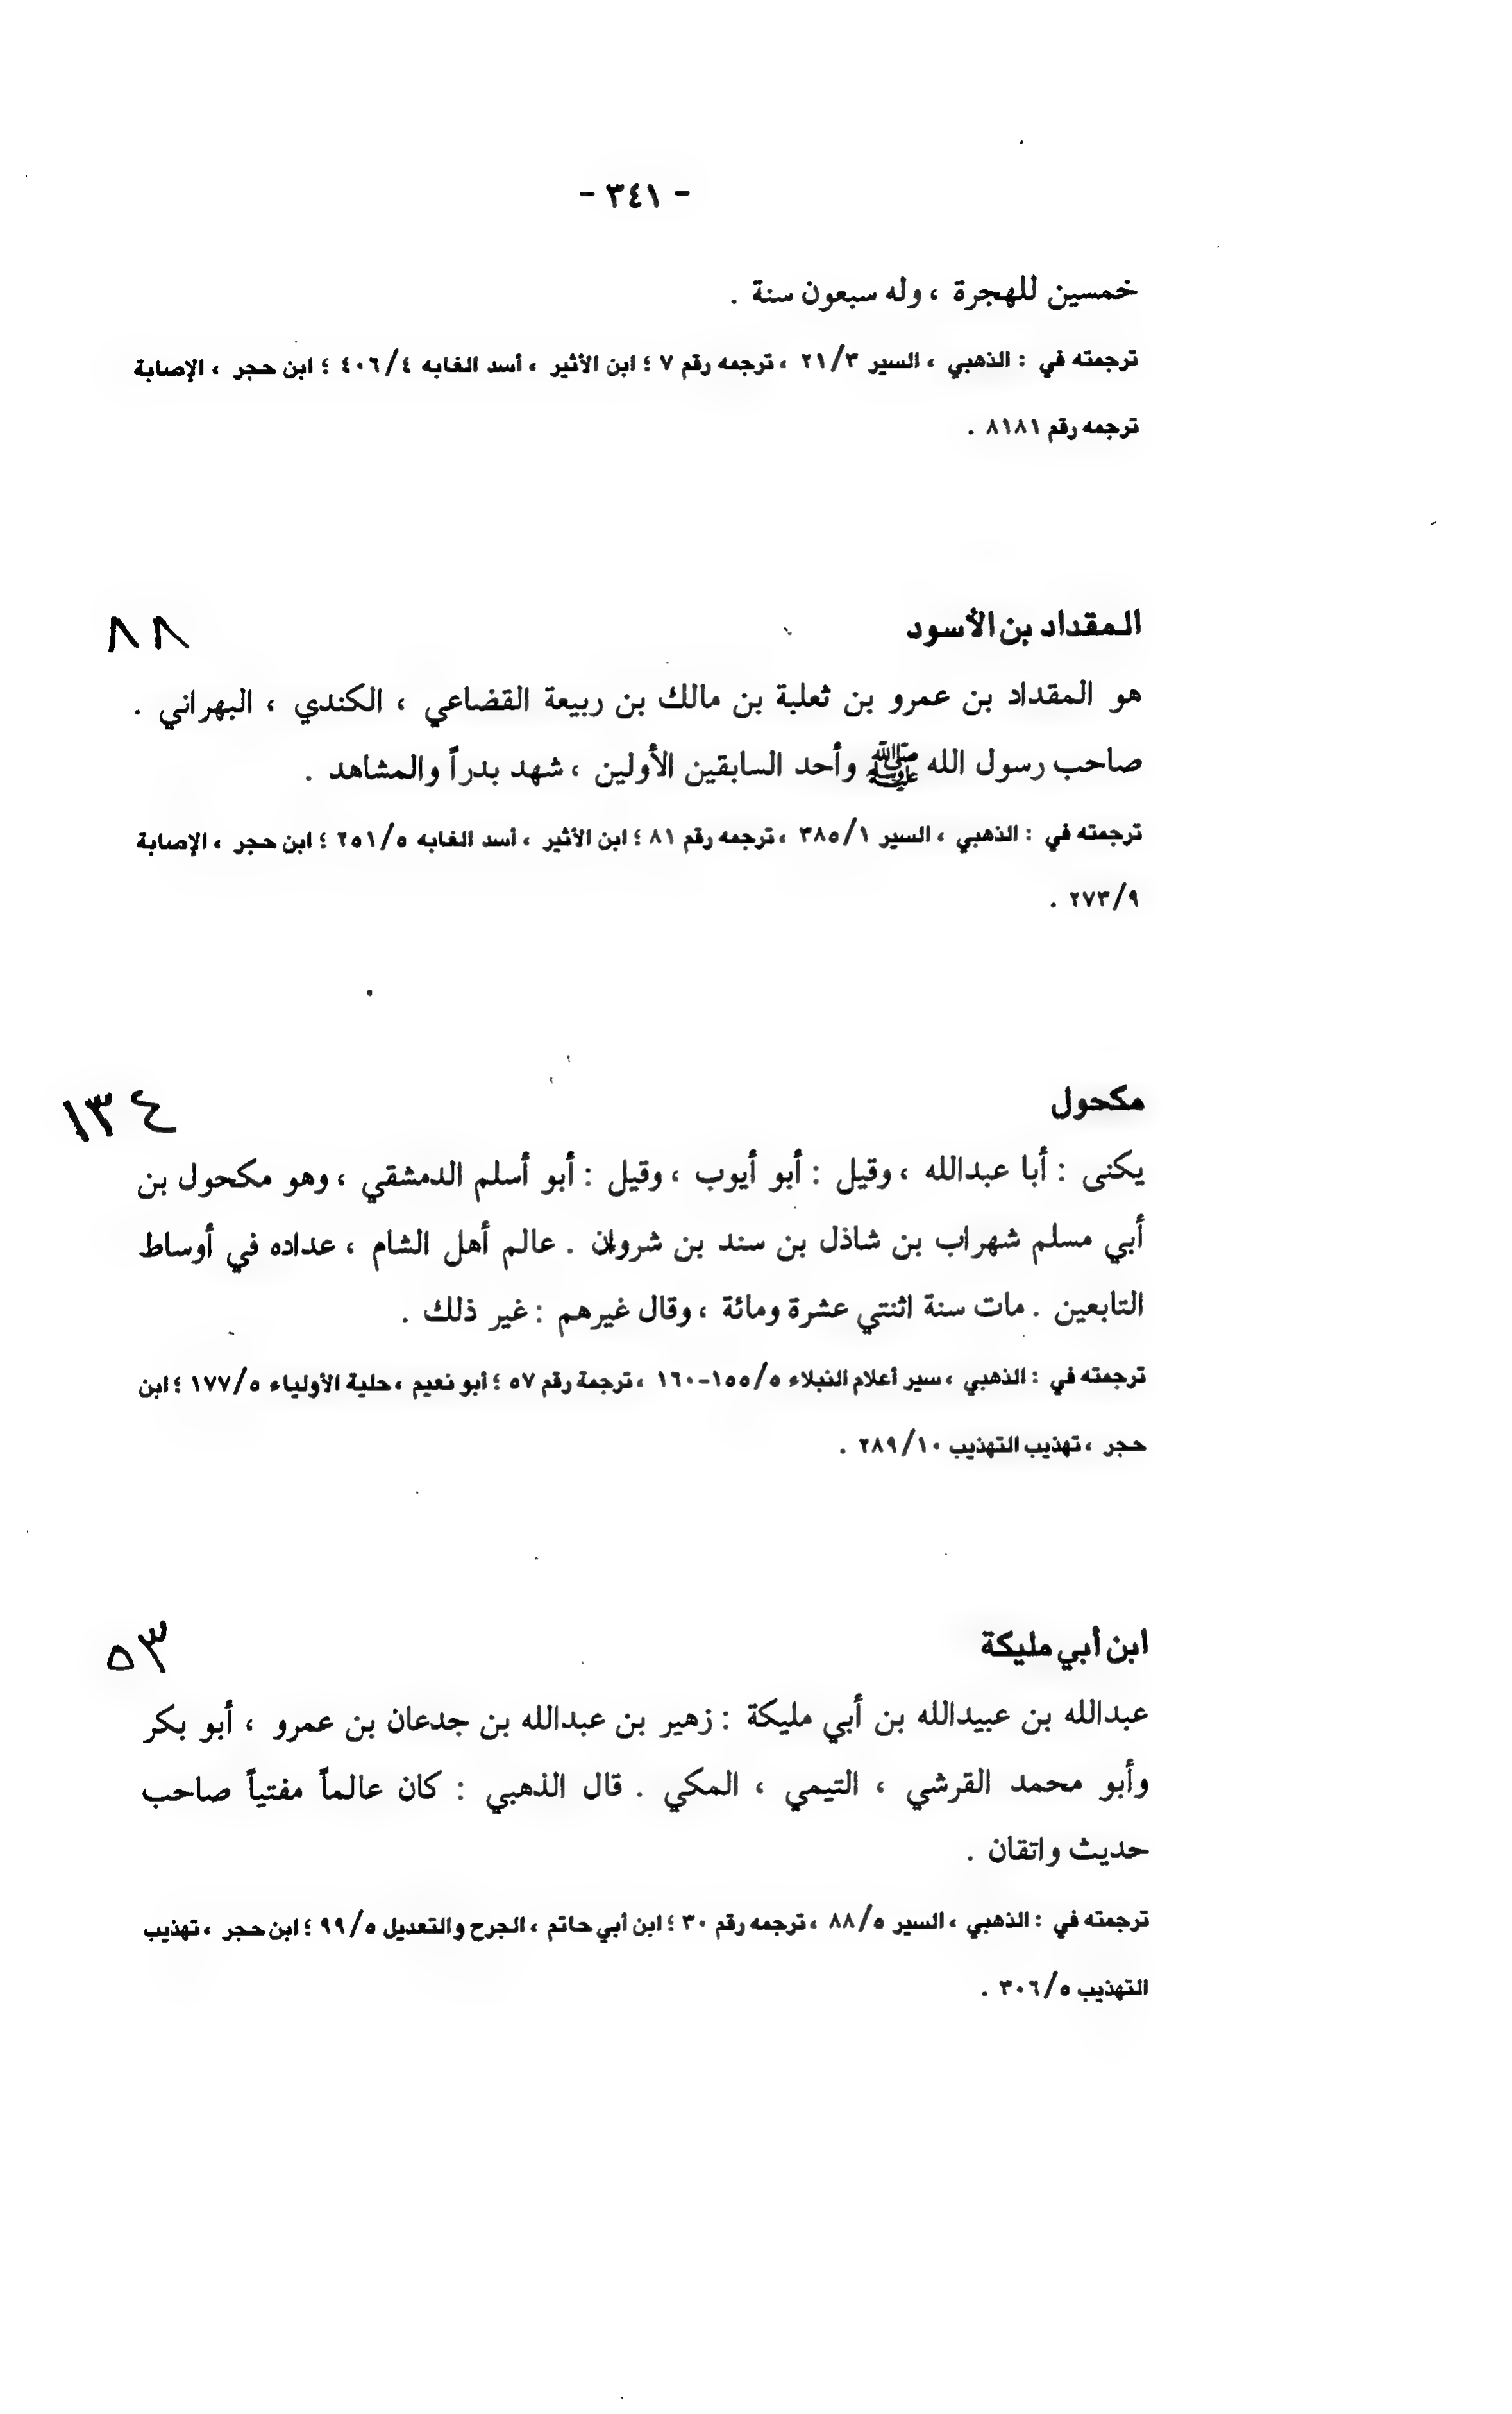 - ٣٤١ -
خمسين للهجرة ، وله سبعون سنة .
ترجمته في : الذهبي ، السير ٢١/٣ ، ترجمه رقم ٧ ؛ ابن الأثير ، أسد الغابه ٤٠٦/٤ ؛ ابن حجر ، الإصابة
ترجمه رقم ٨١٨١ .
المقداد بن الأسود ٨٨
هو المقداد بن عمرو بن ثعلبة بن مالك بن ربيعة القضاعي ، الكندي ، البهراني .
صاحب رسول الله ﷺ وأحد السابقين الأولين ، شهد بدراً والمشاهد .
ترجمته في : الذهبي ، السير ٣٨٥/١ ، ترجمه رقم ٨١ ؛ ابن الأثير ، أسد الغابه ٢٥١/٥ ؛ ابن حجر ، الإصابة
٢٧٣/٩ .
مكحول ١٣٤
يكنى : أبا عبدالله ، وقيل : أبو أيوب ، وقيل : أبو أسلم الدمشقي ، وهو مكحول بن
أبي مسلم شهراب بن شاذل بن سند بن شروان . عالم أهل الشام ، عداده في أوساط
التابعين . مات سنة اثنتي عشرة ومائة ، وقال غيرهم : غير ذلك .
ترجمته في : الذهبي ، سير أعلام النبلاء ١٥٥/٥-١٦٠ ، ترجمة رقم ٥٧ ؛ أبو نعيم ، حلية الأولياء ١٧٧/٥ ؛ ابن
حجر ، تهذيب التهذيب ٢٨٩/١٠ .
ابن أبي مليكة ٥٣
عبدالله بن عبيدالله بن أبي مليكة : زهير بن عبدالله بن جدعان بن عمرو ، أبو بكر
وأبو محمد القرشي ، التيمي ، المكي . قال الذهبي : كان عالماً مفتياً صاحب
حديث واتقان .
ترجمته في : الذهبي ، السير ٨٨/٥ ، ترجمه رقم ٣٠ ؛ ابن أبي حاتم ، الجرح والتعديل ٩٩/٥ ؛ ابن حجر ، تهذيب
التهذيب ٣٠٦/٥ .